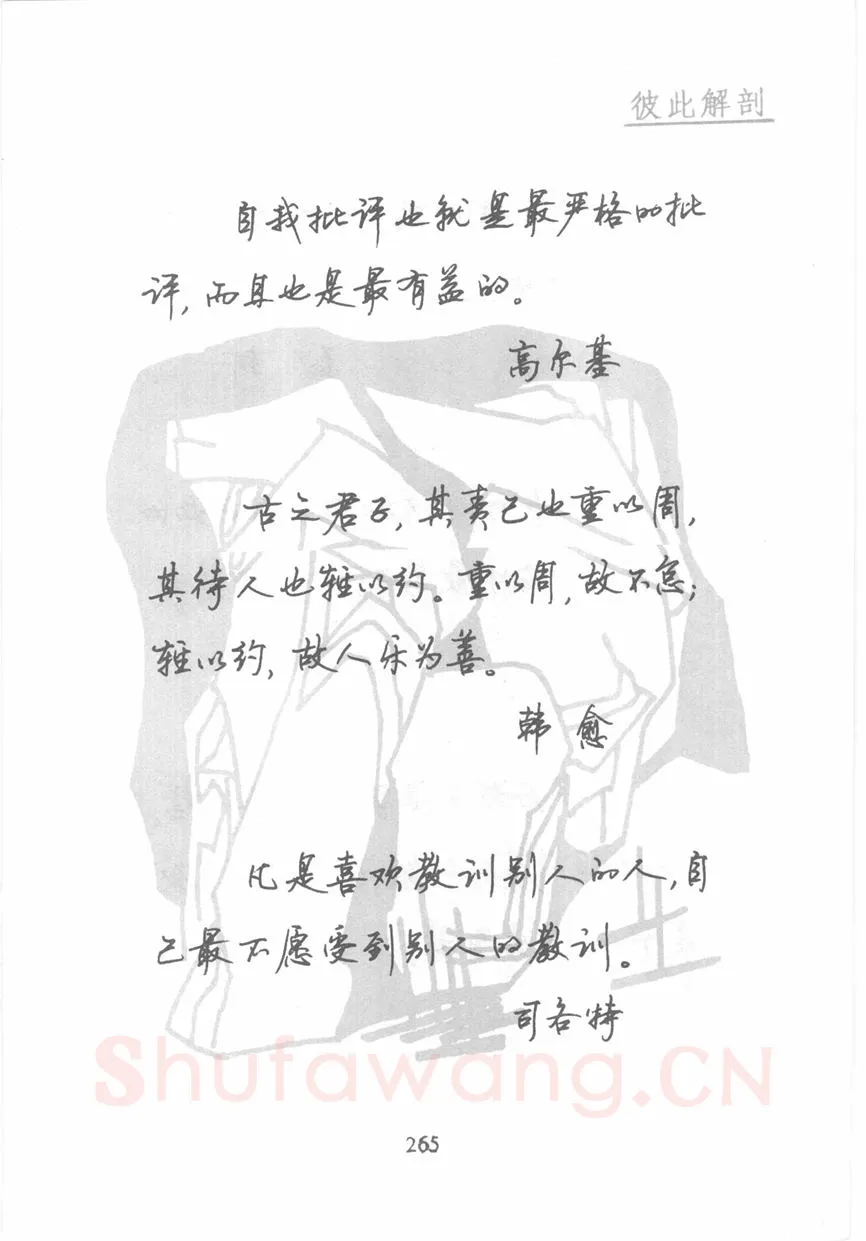 彼此解剖
自我批评也就是最严格的批
评,而且也是最有益的。
高尔基
古之君子,其责己也重以周,
其待人也轻以约。重以周,故不怠;
轻以约,故人乐为善。
韩愈
凡是喜欢教训别人的人,自
己最不愿受到别人的教训。
司各特
Shufawang.CN
265